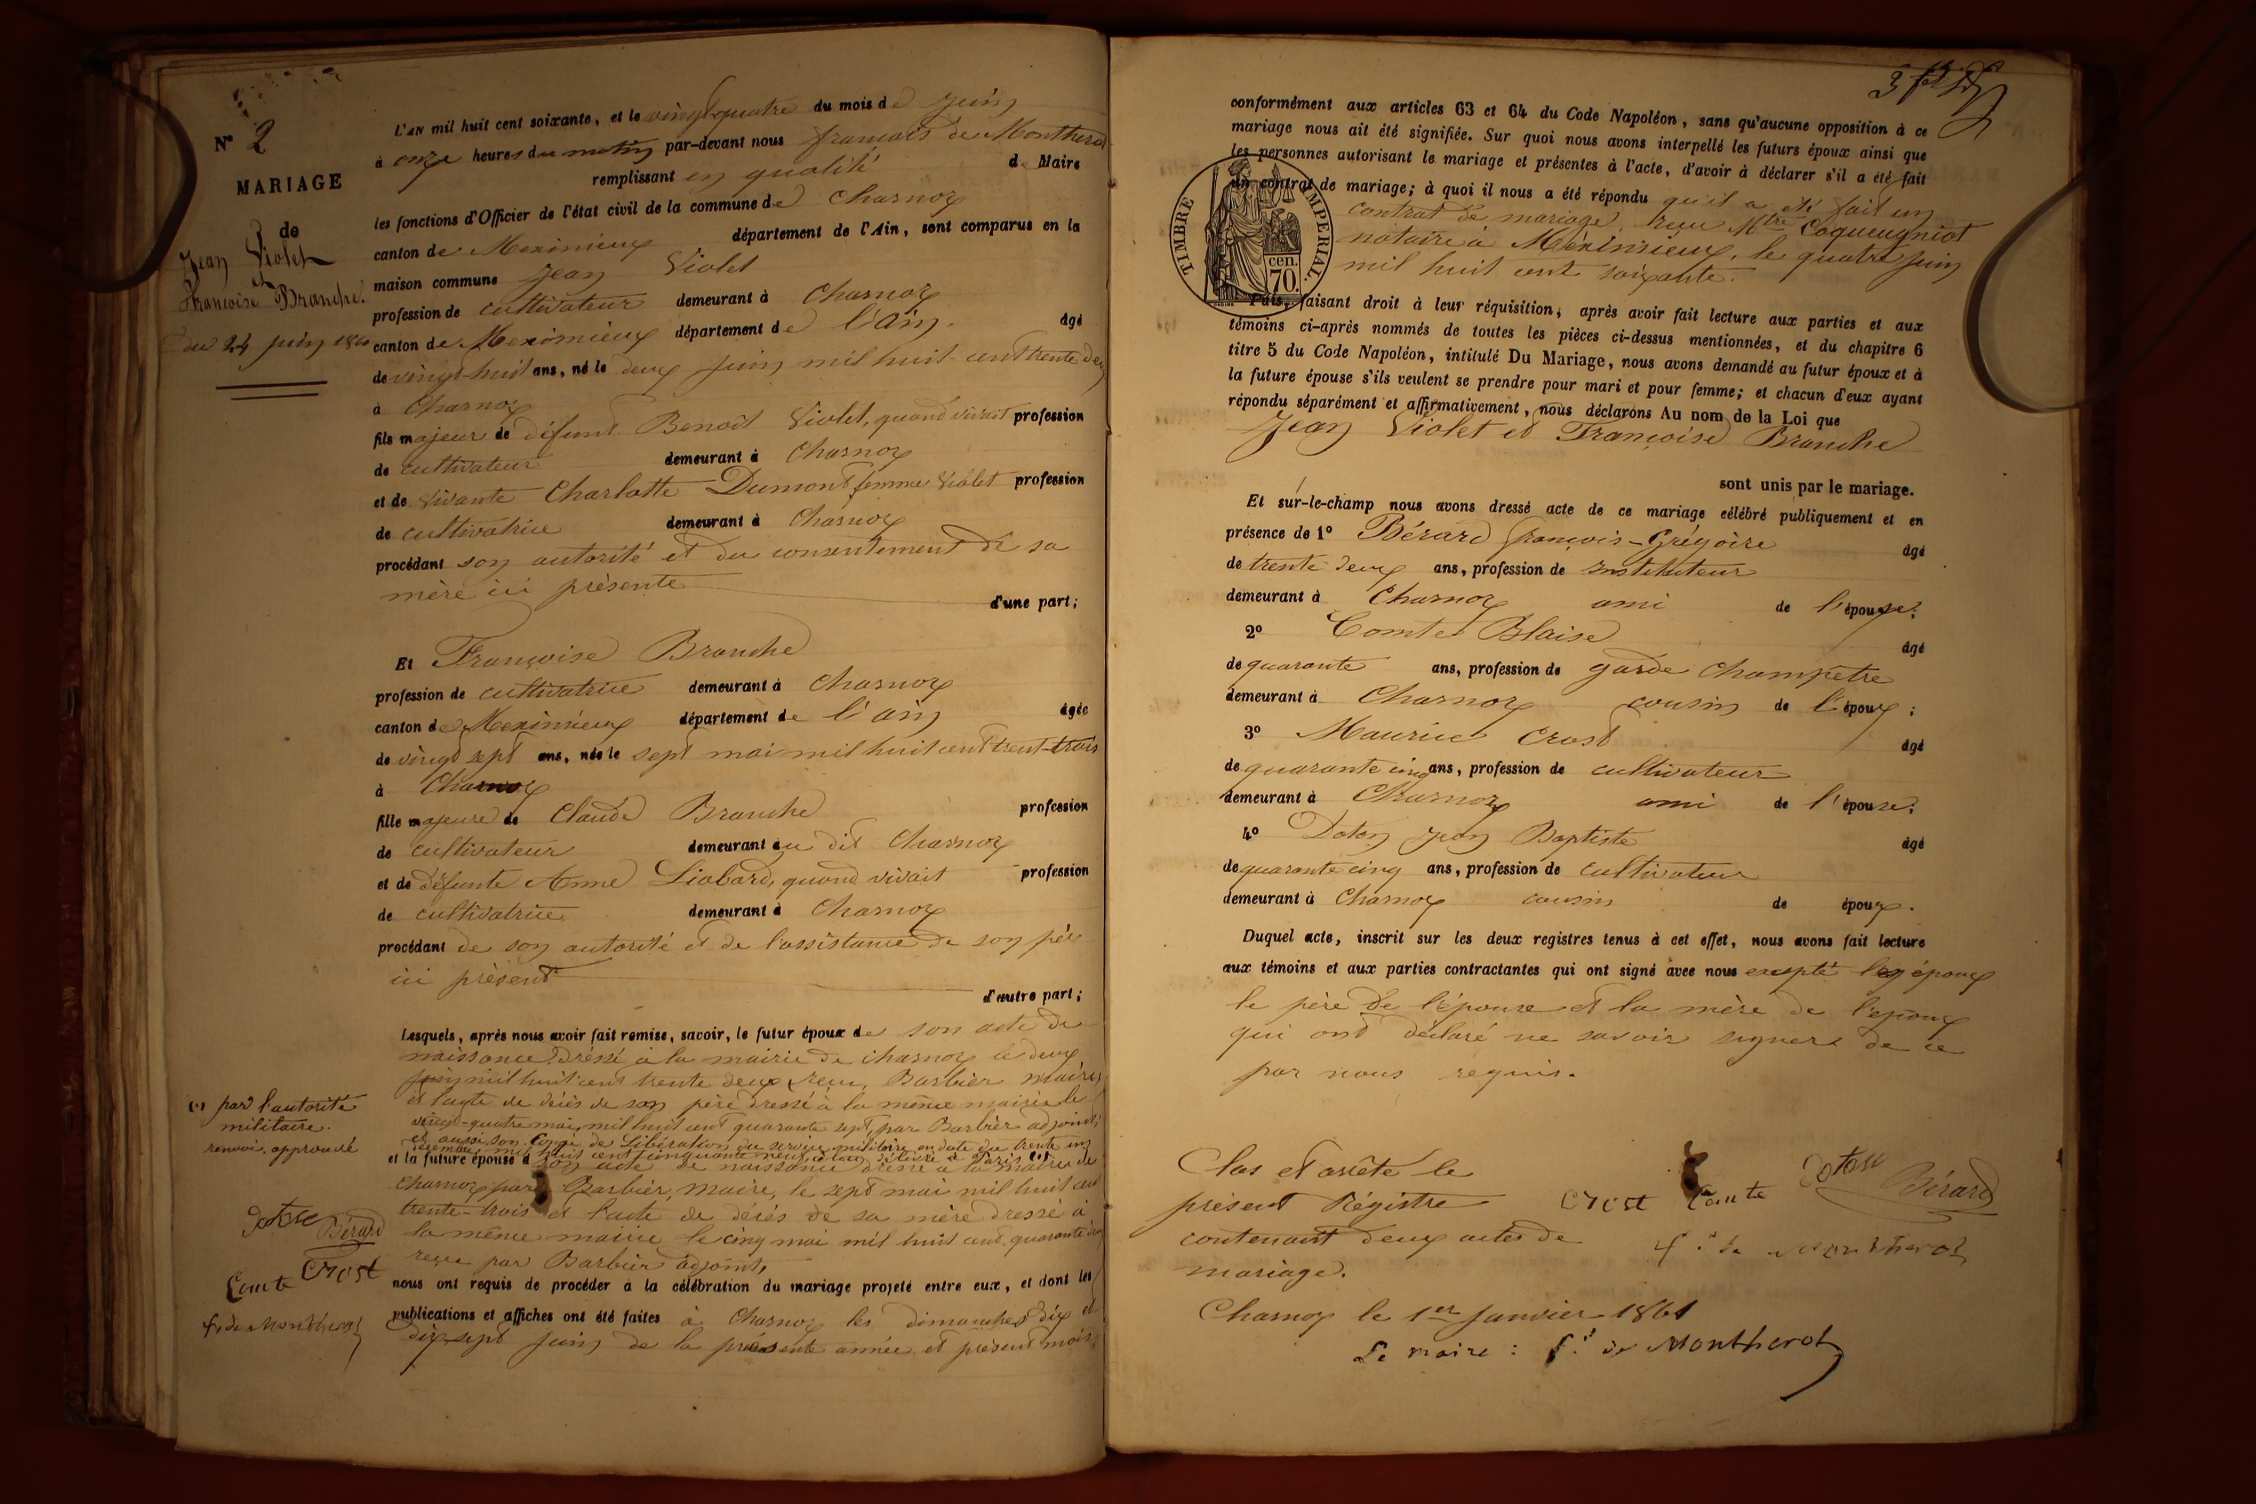 N° 2
MARIAGE
de
Jean Violet
et
Françoise Branche.
du 24 juin 1860
L'AN mil huit cent soixante, et le vingt-quatre du mois de Juin
à onze heures du matin par-devant nous françois de Montherot
remplissant en qualité de Maire
les fonctions d'Officier de l'état civil de la commune de Charnoz
canton de Meximieux département de l'Ain, sont comparus en la
maison commune Jean Violet
profession de cultivateur demeurant à Charnoz
canton de Meximieux département de l'ain. âgé
de vingt-huit ans, né le deux juin mil huit cent trente deux
à Charnoz
fils majeur de défunt Benoît Violet, quand vivait profession
de cultivateur demeurant à Charnoz
et de vivante Charlotte Dumont femme Violet profession
de cultivatrice demeurant à Charnoz
procédant son autorité et du consentement de sa
mère ici présente
d'une part;
Et Françoise Branche
profession de cultivatrice demeurant à Charnoz
canton de Meximieux département de l'ain âgée
de vingt sept ans, née le sept mai mil huit cent trent-trois
à Charnoz
fille majeure de Claude Branche profession
de cultivateur demeurant au dit Charnoz
et de défunte Anne Liobard, quand vivait profession
de cultivatrice demeurant à Charnoz
procédant de son autorité et de l'assistance de son père
ici présent
d'autre part;
Lesquels, après nous avoir fait remise, savoir, le futur époux de son acte de
naissance dressé à la mairie de charnoz le deux
juin mil huit cent trente deux reçu, Barbier maire,
et l'acte de décès de son père dressé à la même mairie le
vingt-quatre mai mil huit cent quarante sept, par Barbier adjoint;
et aussi son Congé de Libération du service militaire en date du trente un
décembre mil huit cent cinquante neuf, à lui délivré à Paris (1)
et la future épouse d son acte de naissance dressé à la mairie de
charnoz par Barbier, maire, le sept mai mil huit cent
trente-trois et l'acte de décès de sa mère dressé à
la même mairie le cinq mai mil huit cent quarante
reçu par Barbier adjoint,
nous ont requis de procéder à la célébration du mariage projeté entre eux, et dont les
publications et affiches ont été faites à Charnoz les dimanches dix et
dix sept juin de la présente année et présent mois,
(1) par l'autorité
militaire.
renvoi approuvé
Doton
Bérard
Crost
Comte
f. de Montherot
conformément aux articles 63 et 64 du Code Napoléon, sans qu'aucune opposition à ce
mariage nous ait été signifiée. Sur quoi nous avons interpellé les futurs époux ainsi que
les personnes autorisant le mariage et présentes à l'acte, d'avoir à déclarer s'il a été fait
un contrat de mariage; à quoi il nous a été répondu qu'il a été fait un
contrat de mariage, reçu Mtre Coqueugniot
notaire à Meximieux, le quatre juin
mil huit cent soixante.
TIMBRE IMPERIAL.
70.
cen.
Puis, faisant droit à leur réquisition, après avoir fait lecture aux parties et aux
témoins ci-après nommés de toutes les pièces ci-dessus mentionnées, et du chapitre 6
titre 5 du Code Napoléon, intitulé Du Mariage, nous avons demandé au futur époux et à
la future épouse s'ils veulent se prendre pour mari et pour femme; et chacun d'eux ayant
répondu séparément et affirmativement, nous déclarons Au nom de la Loi que
Jean Violet et Françoise Branche
sont unis par le mariage.
Et sur-le-champ nous avons dressé acte de ce mariage célébré publiquement et en
présence de 1° Bérard françois-Grégoire âgé
de trente deux ans, profession de instituteur
demeurant à Charnoz ami de l'épouse;
2° Comte Blaise âgé
de quarante ans, profession de garde champetre
demeurant à Charnoz cousin de l'époux;
3° Maurice Crost âgé
de quarante cinq ans, profession de cultivateur
demeurant à Charnoz ami de l'épouse;
4° Doton Jean Baptiste âgé
de quarante cinq ans, profession de cultivateur
demeurant à Charnoz cousin de époux.
Duquel acte, inscrit sur les deux registres tenus à cet effet, nous avons fait lecture
aux témoins et aux parties contractantes qui ont signé avec nous excepté les époux
le père de l'épouse et la mère de l'époux
qui ont déclaré ne savoir signer de ce
par nous requis.
Clos et arrêté le
présent Régistre
contenant deux actes de
mariage.
Crost Comte Doton Bérard
f. de Montherot
Charnoz le 1er Janvier 1861
Le maire : f. de Montherot